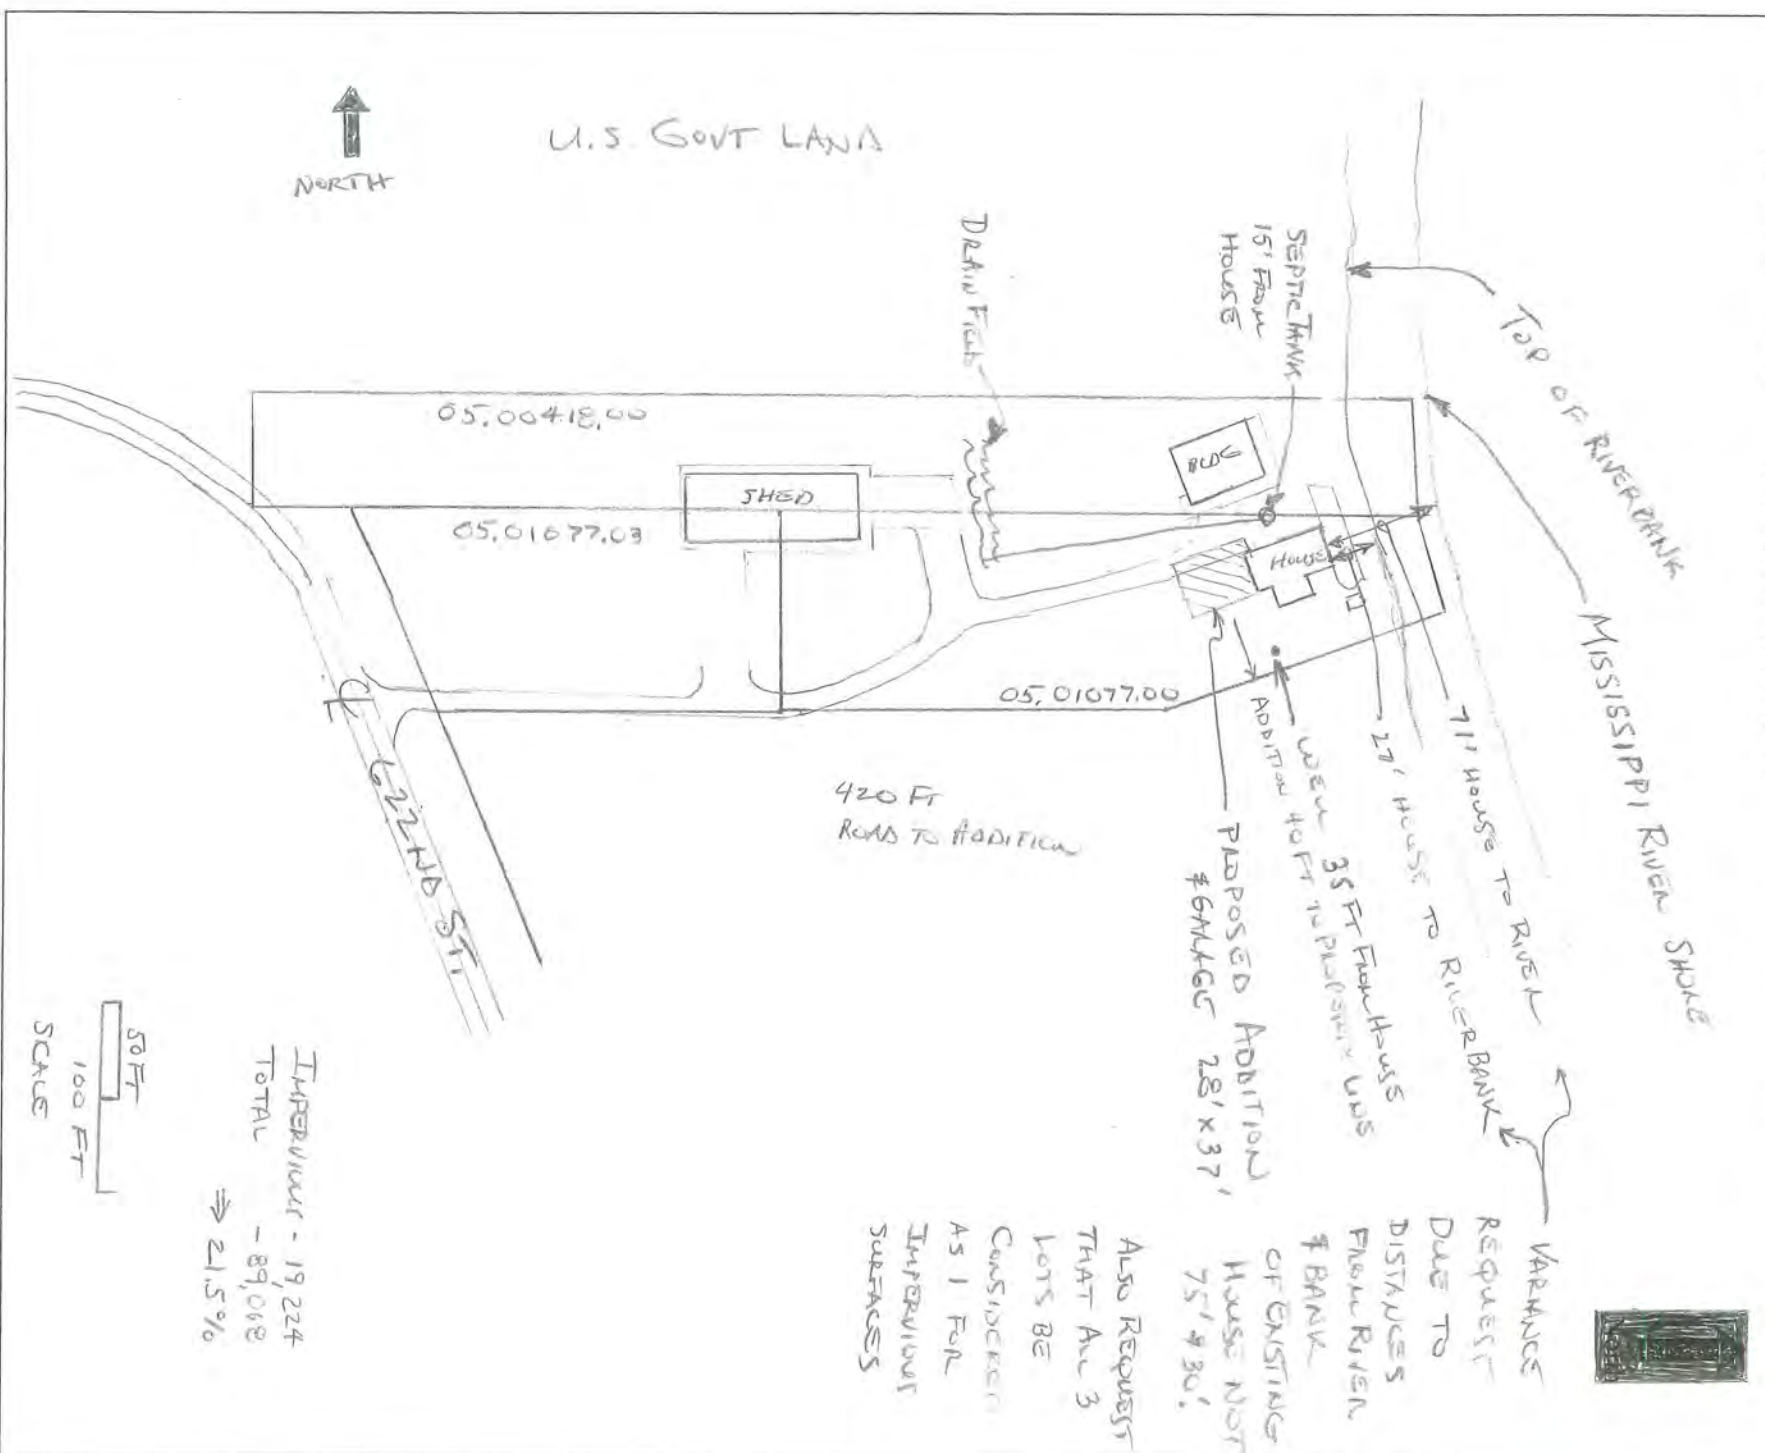 U.S. GOVT LAND
NORTH
DRAIN FIELD
SEPTIC TANK
15' FROM
HOUSE
TOP OF RIVERBANK
MISSISSIPPI RIVER SHORE
05.00418.00
BLDG
SHED
05.01077.03
HOUSE
05.01077.00
71' HOUSE TO RIVER
27' HOUSE TO RIVERBANK
WELL 35 FT FROM HOUSE
ADDITION 40 FT TO PROPERTY LINE
PROPOSED ADDITION
& GARAGE 28' x 37'
420 FT
ROAD TO ADDITION
622ND ST.
VARIANCE
REQUEST
DUE TO
DISTANCES
FROM RIVER
& BANK
OF EXISTING
HOUSE NOT
75' & 30'.
ALSO REQUEST
THAT ALL 3
LOTS BE
CONSIDERED
AS 1 FOR
IMPERVIOUS
SURFACES
IMPERVIOUS - 19,224
TOTAL - 89,068
⇒ 21.5%
50 FT
100 FT
SCALE